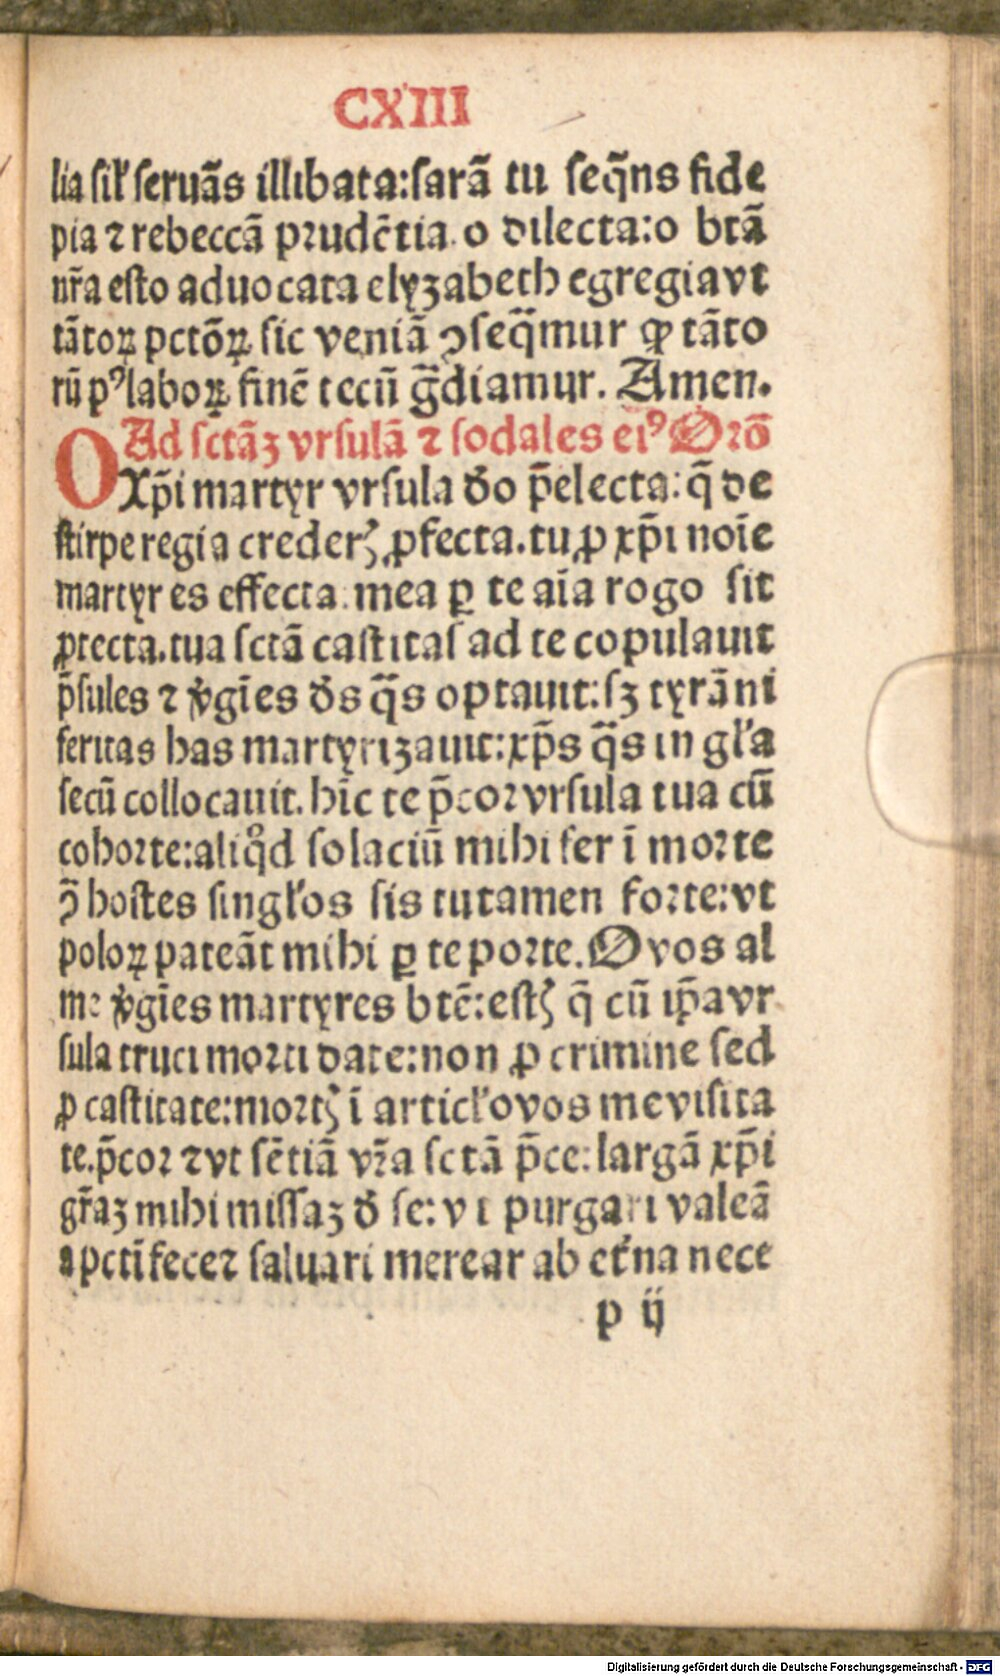 CXIII
lia sil' seruãs illibata:sarã tu seq̃ns fide
pia ⁊ rebeccã prudẽtia. o dilecta:o btã
nr̃a esto aduocata elyzabeth egregia vt
tãtoꝝ pctõꝝ sic veniã ꝯseq̃mur ꝓ tãto
rũ pꝰ laboꝝ finẽ tecũ g̃diamur. Amen.
Ad sctãꝫ vrsulã ⁊ sodales eiꝰ Orõ
O Xp̃i martyr vrsula ðo p̃electa:q̃ de
stirpe regia crederꝭ ꝓfecta.tu ꝓ xp̃i noĩe
martyr es effecta.mea ꝑ te aĩa rogo sit
ꝓtecta.tua sctã castitas ad te copulauit
p̃sules ⁊ ṽgĩes ðs q̃s optauit:sꝫ tyrãni
feritas has martyrizauit:xp̃s q̃s in gl'a
secũ collocauit. hĩc te p̃cor vrsula tua cũ
cohorte:aliq̃d solaciũ mihi fer ĩ morte
ꝯ̃ hostes singl'os sis tutamen forte:vt
poloꝝ pateãt mihi ꝑ te porte. O vos al
me ṽgĩes martyres btẽ:estꝭ q̃ cũ ip̃a vr
sula truci morti date:non ꝓ crimine sed
ꝓ castitate:mortꝭ ĩ articl'o vos me visita
te.p̃cor ⁊ vt sẽtiã vr̃a sctã p̃ce:largã xp̃i
gr̃aꝫ mihi missaꝫ ð se:vt purgari valeã
a pcti fece ⁊ saluari merear ab et'na nece
p ij
Digitalisierung gefördert durch die Deutsche Forschungsgemeinschaft - DFG